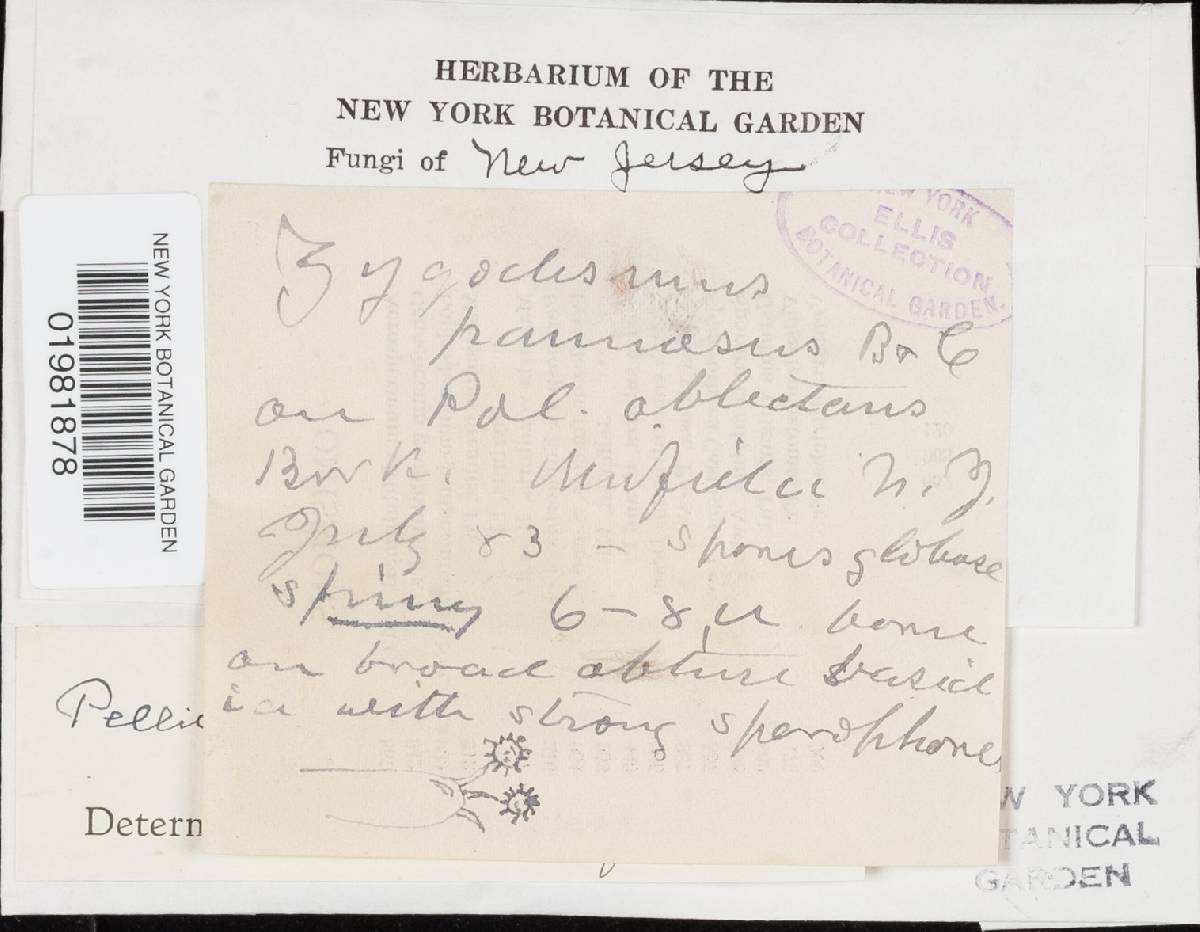 HERBARIUM OF THE
NEW YORK BOTANICAL GARDEN
Fungi of New Jersey
NEW YORK
ELLIS
COLLECTION
BOTANICAL GARDEN.
Zygodesmus
pannosus B & C
on Pol. oblectans
Berk. Newfield N. J.
July 83 - spores globose
spiny 6-8 µ borne
on broad obtuse basid
ia with strong sporophores
NEW YORK BOTANICAL GARDEN
01981878
Pellic
Determ
W YORK
TANICAL
GARDEN